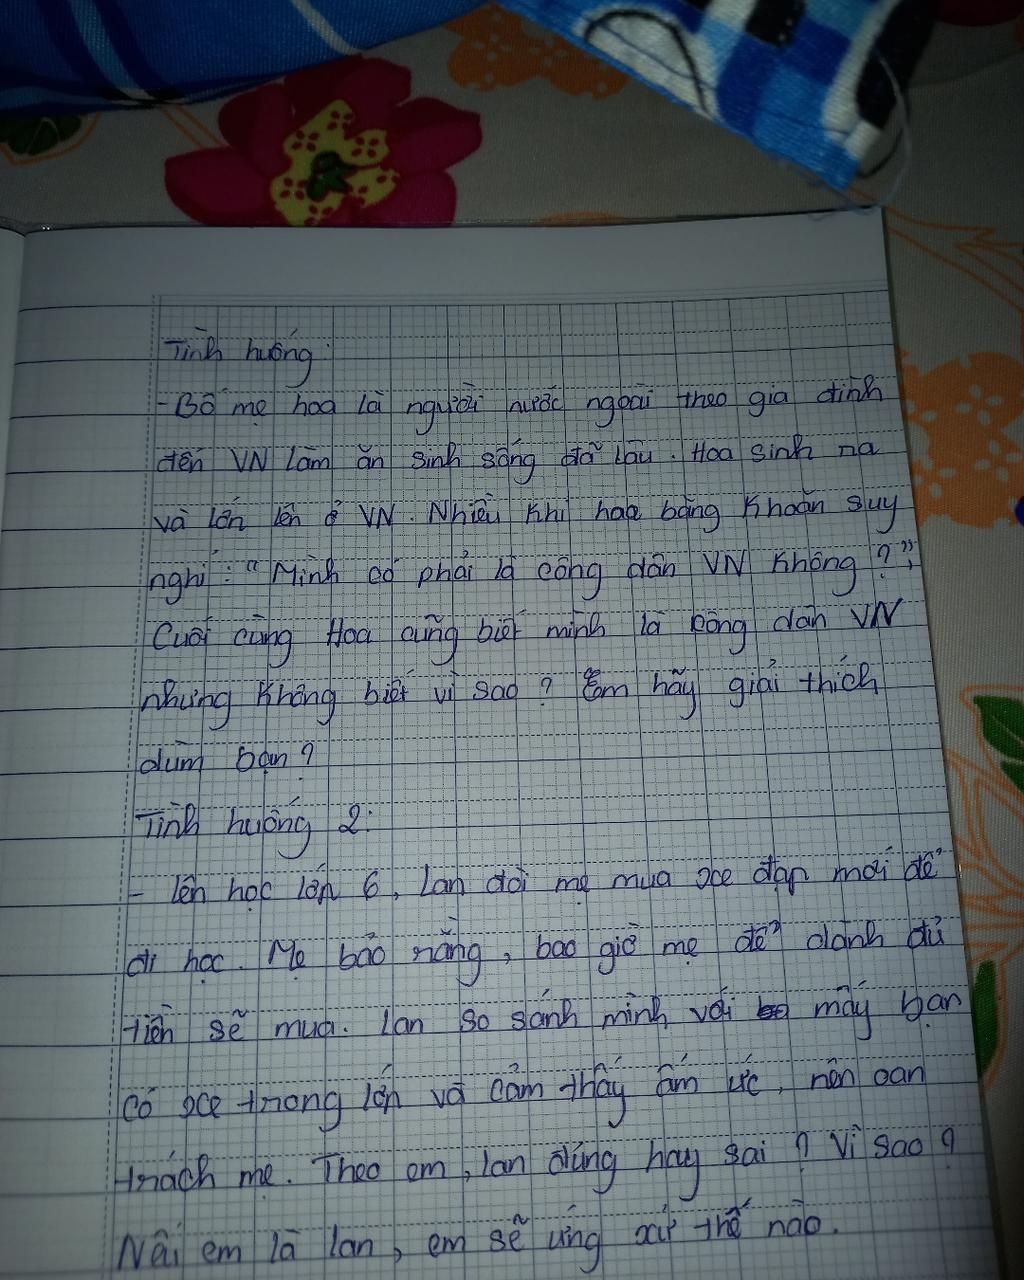 Tình huống:
- Bố mẹ hoa là người nước ngoài theo gia đình
đến VN làm ăn sinh sống đã lâu. Hoa sinh na
và lớn lên ở VN. Nhiều khi hoa bâng khoăn suy
nghĩ: "Mình có phải là công dân VN không?";
Cuối cùng Hoa cũng biết mình là công dân VN
nhưng không biết vì sao? Em hãy giải thích
dùm bạn?
Tình huống 2:
- lên học lớp 6, lan đòi mẹ mua xe đạp mới để
đi học. Mẹ bảo rằng, bao giờ mẹ để dành đủ
tiền sẽ mua. lan so sánh mình với mấy bạn
có xe trong lớp và cảm thấy ấm ức, nên oan
trách mẹ. Theo em, lan đúng hay sai? Vì sao?
Nếi em là lan, em sẽ ứng xử thế nào.